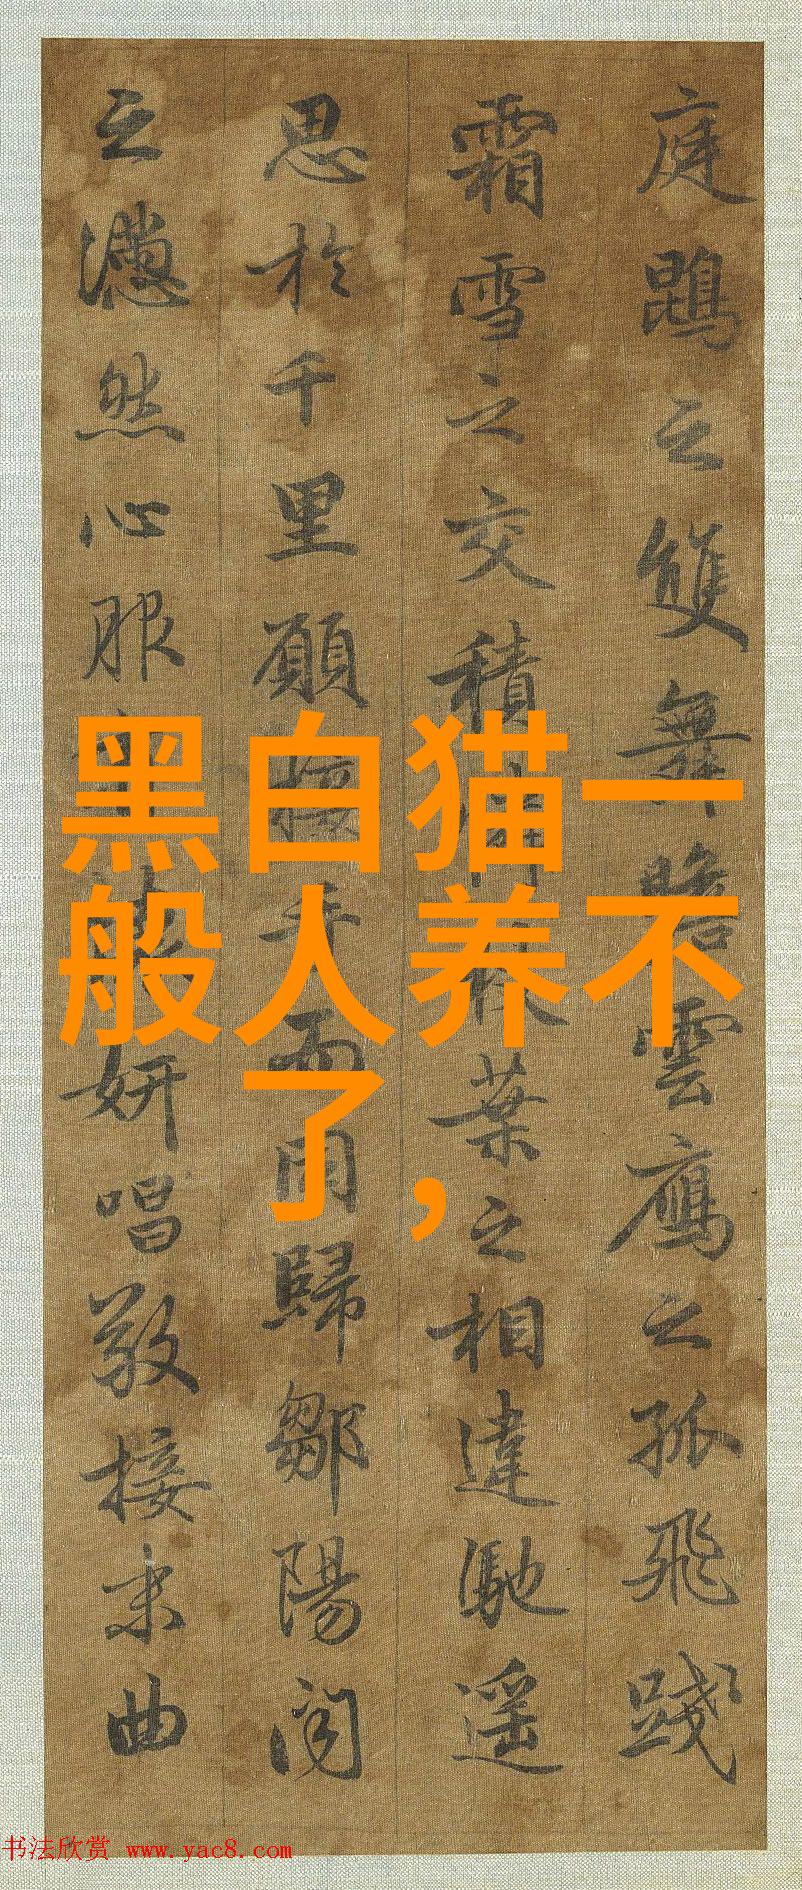 庭鵾之雙舞瞻雲鴈之孤飛踐
霜雪之交積憐枝葉之相違馳遥
思於千里願接手而同歸鄒陽聞
之懣然心服妍唱敬接末曲
黑白猫一
般人养不
了，
书法欣赏 www.yac8.com